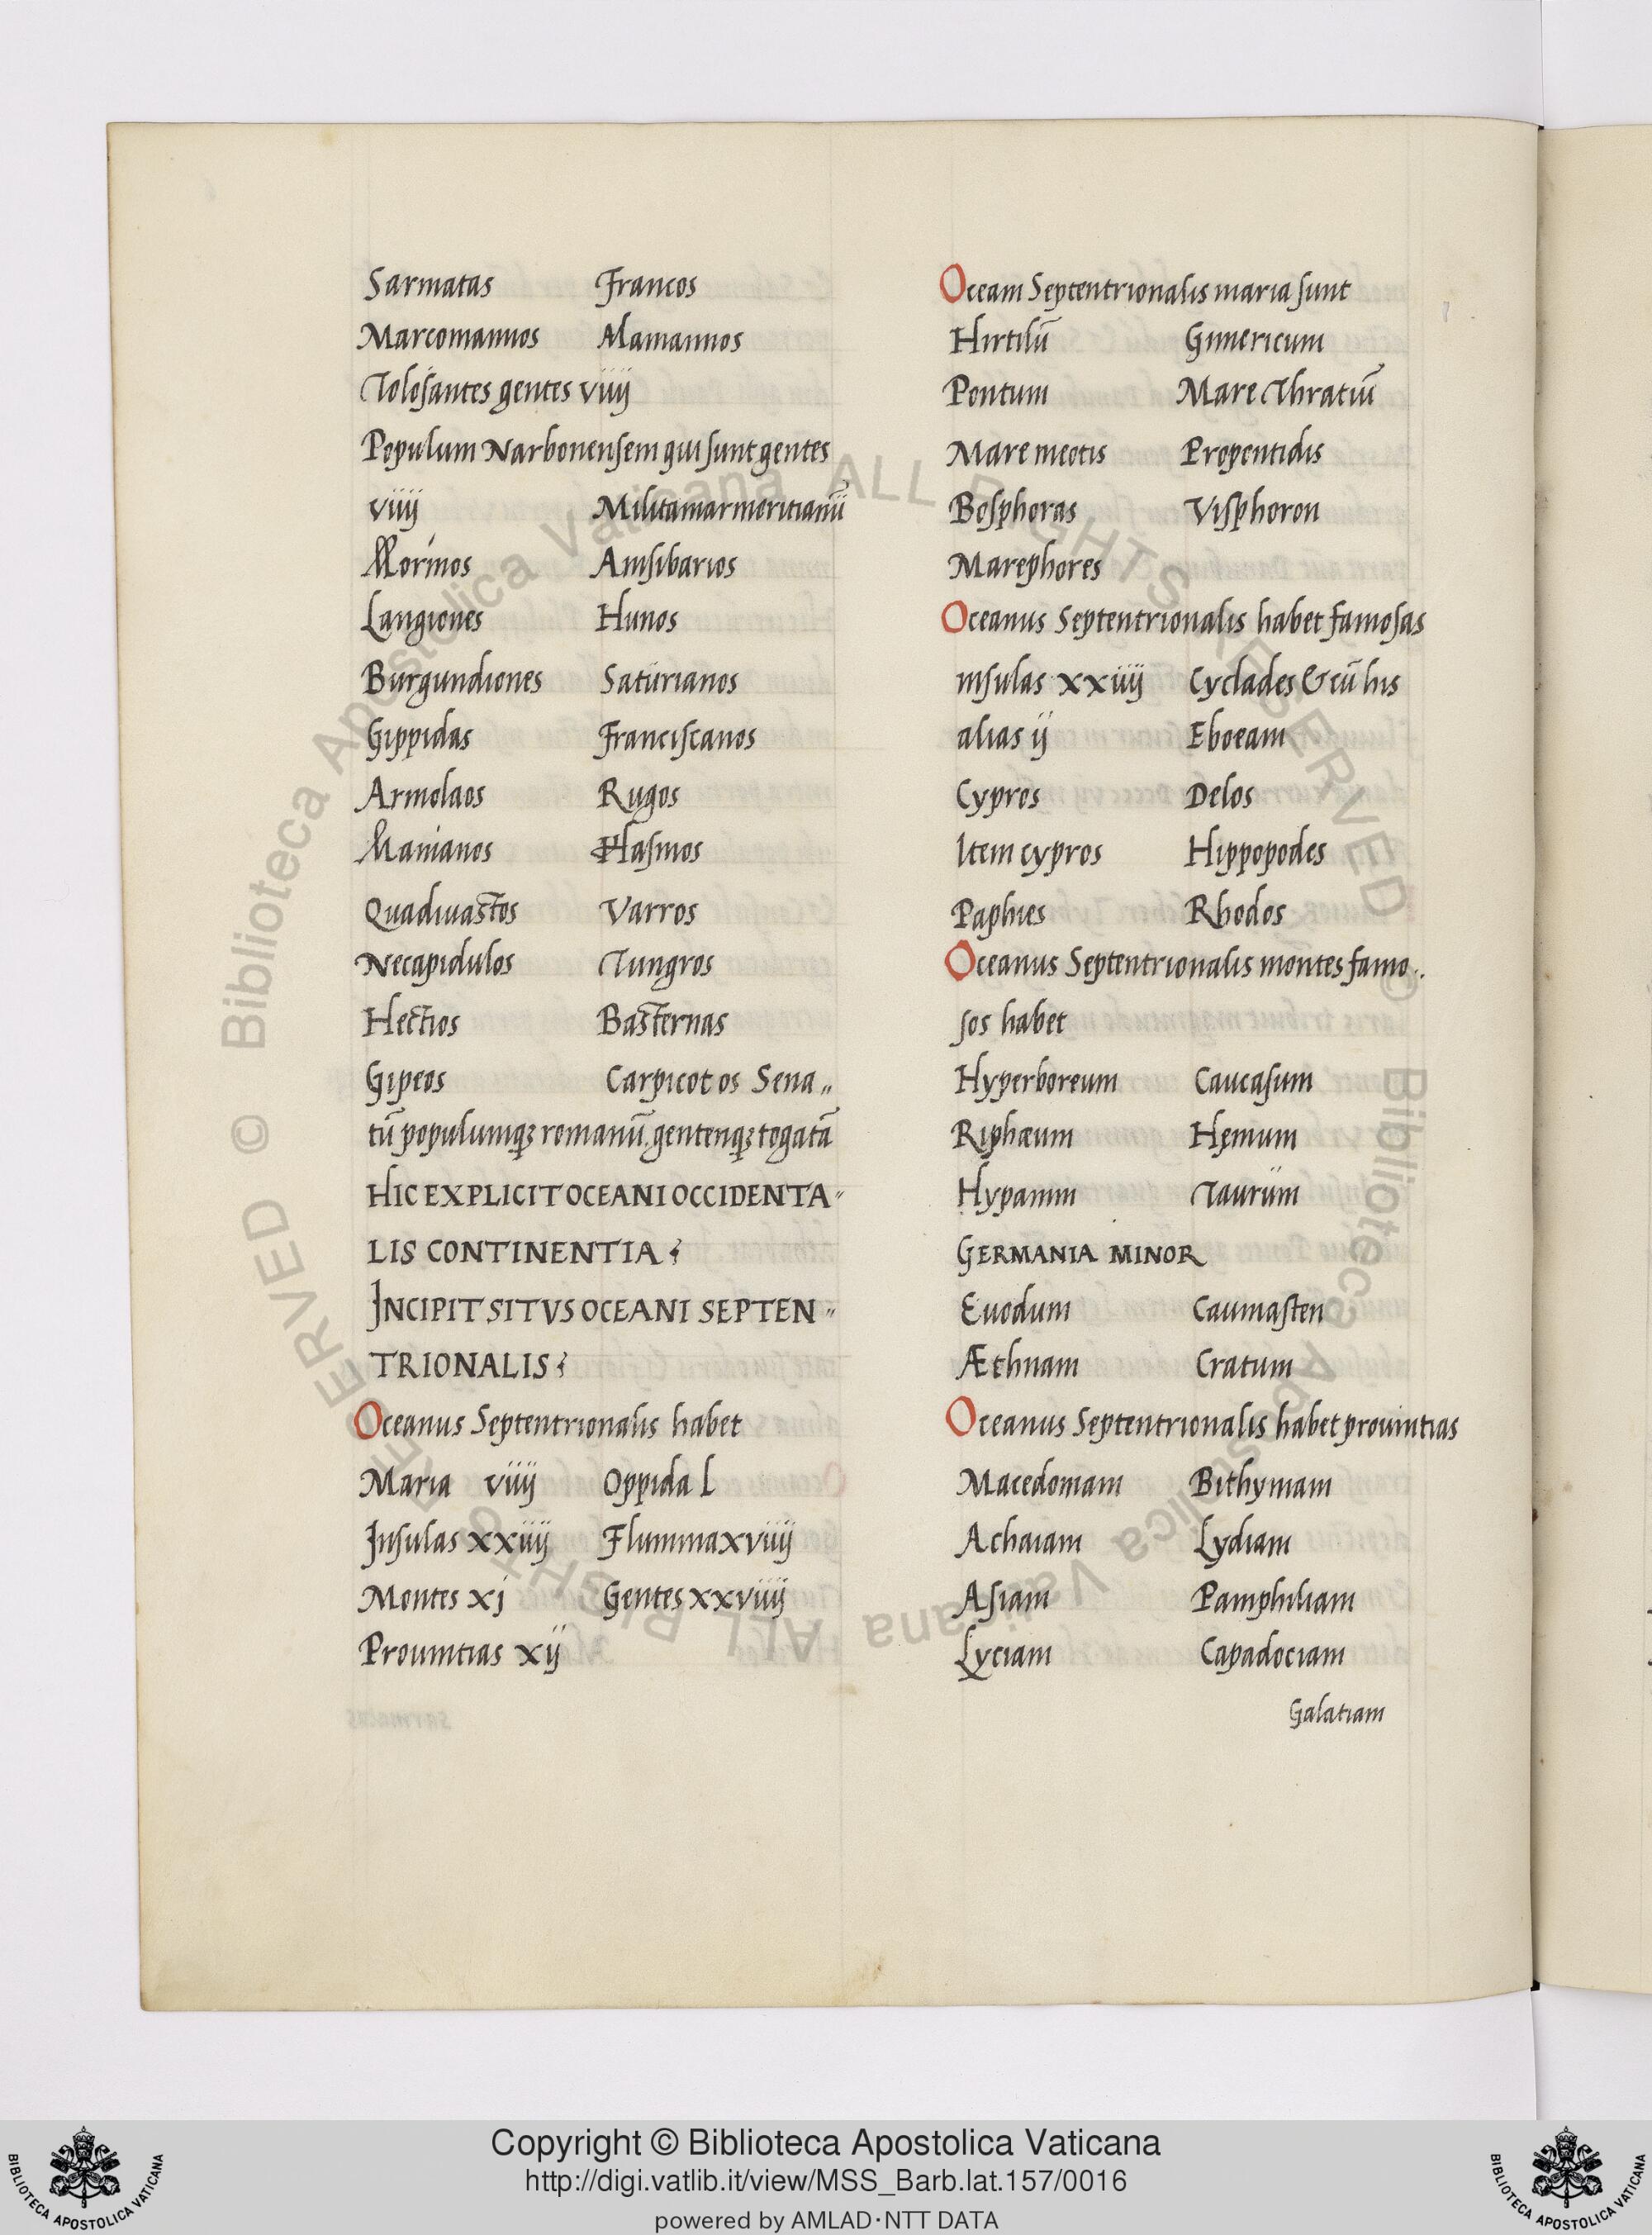 Sarmatas Francos
Marcomannos Alamannos
Tolosantes gentes viiij
Populum Narbonensem qui sunt gentes
viiij Militamarmoritianū
Morinos Amsibarios
Langiones Hunos
Burgundiones Saturianos
Gippidas Franciscanos
Armolaos Rugos
Manianos Hasmos
Quadiuastos Varros
Necapidulos Tungros
Hectios Basternas
Gipeos Carpicotos Sena„
tū populumq; romanū, gentenq; togatā
HIC EXPLICIT OCEANI OCCIDENTA„
LIS CONTINENTIA
INCIPIT SITVS OCEANI SEPTEN„
TRIONALIS
Oceanus Septentrionalis habet
Maria viiij Oppida L
Insulas xxiiij Flumina xviiij
Montes xj Gentes xxviiij
Prouintias xij
Oceani Septentrionalis maria sunt
Hirtilū Gimericum
Pontum Mare Thratiū
Mare meotis Propontidis
Bosphoras Visphoron
Marephores
Oceanus Septentrionalis habet famosas
insulas xxiiij Cyclades & cū his
alias ij Eboeam
Cypros Delos
Item cypros Hippopodes
Paphies Rhodos
Oceanus Septentrionalis montes famo..
sos habet
Hyperboreum Caucasum
Riphæum Hęmum
Hypanim Taurum
GERMANIA MINOR
Euodum Caumasten
Æthnam Cratum
Oceanus Septentrionalis habet prouintias
Macedoniam Bithyniam
Achaiam Lydiam
Asiam Pamphiliam
Lyciam Capadociam
Galatiam
Copyright © Biblioteca Apostolica Vaticana
http://digi.vatlib.it/view/MSS_Barb.lat.157/0016
powered by AMLAD·NTT DATA
BIBLIOTECA APOSTOLICA VATICANA
BIBLIOTECA APOSTOLICA VATICANA
© Biblioteca Apostolica Vaticana ALL RIGHTS RESERVED
© Biblioteca Apostolica Vaticana ALL RIGHTS RESERVED